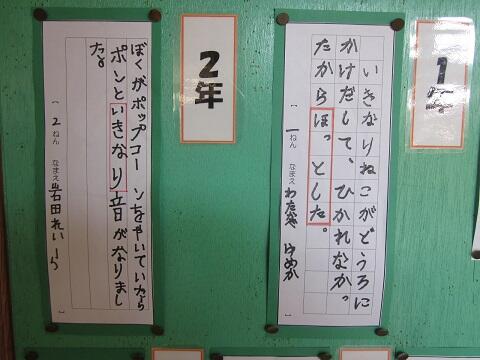 1年
いきなりねこがどうろに
かけだして、ひかれなかっ
たからほっとした。
一ねん なまえ
2年
ぼくがポップコーンをやいていたら
ポンといきなり音がなりまし
た。
2ねん なまえ 岩田れいいち